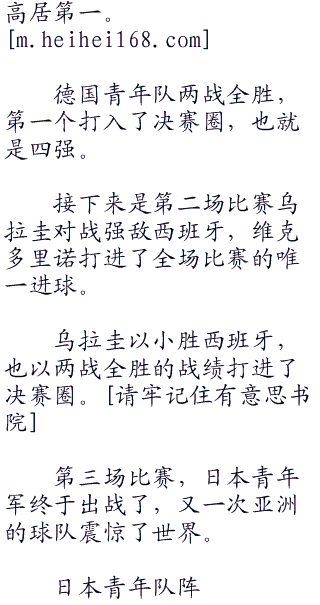 高居第一。
[m.heihei168.com]
德国青年队两战全胜，
第一个打入了决赛圈，也就
是四强。
接下来是第二场比赛乌
拉圭对战强敌西班牙，维克
多里诺打进了全场比赛的唯
一进球。
乌拉圭以小胜西班牙，
也以两战全胜的战绩打进了
决赛圈。[请牢记住有意思书
院]
第三场比赛，日本青年
军终于出战了，又一次亚洲
的球队震惊了世界。
日本青年队阵